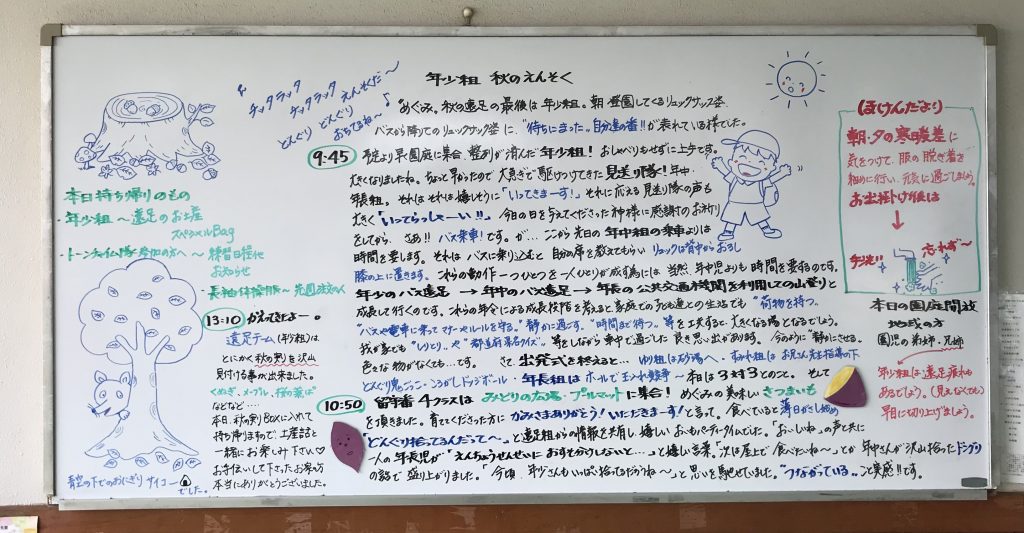 年少組 秋のえんそく
チックタック
チックタック えんそくだ〜
どんぐり どんぐり
おちてるね〜♪
"めぐみ。秋の遠足の最後は年少組。朝登園してくるリュックサック姿
バスから降りてのリュックサック姿に、"待ちに待った。自分達の番!!が表れている様でした。
9:45 予定より早く園庭に集合、整列が済んだ年少組！おしゃべりもせずに上手です。
大きくなりましたね。ちょっと早かったので大急ぎで駆けつけてきた見送り隊！年中・
年長組。それはそれは嬉しそうに「いってきまーす！」それに応える見送り隊の声も
大きく「いってらっしゃーい!!」今日の日を与えてくださった神様に感謝のお祈り
をしてから、さあ!! バス乗車！です。が…ここから先日の年中組の乗車よりは
時間を要します。それはバスに乗り込むと自分の席を教えてもらいリュックは背中からおろし
膝の上に置きます。これらの動作一つひとつを一人ひとりが成す為には当然、年中児よりも時間を要するのです。
年少のバス遠足 → 年中のバス遠足 → 年長の公共交通機関を利用しての山登りと
成長して行くのです。これらの年令による成長段階を考えると家庭での先達との生活でも"荷物を持つ。
"バスや電車に乗ってマナーやルールを守る。"静かに過ごす。"時間まで待つ。等を工夫すると、大きくなる場となるでしょう。
我が家でも"しりとり。や"都道府県名クイズ。等をしながら車中で過ごした良き思い出があります。今のように"静かにさせる。
色々な物がなくても…です。 さて出発式を終えると… ゆり組は砂場へ・すみれ組はお兄さん先生指導の下
どんぐり鬼ごっこ・ころがしドッジボール・年長組はホールで玉入れ競争〜本日は3対3とのこと。そして
10:50 留守番4クラスはみどりの広場・ブルマットに集合！めぐみの美味しいきつまいも
を頂きました。育てくださった方にかみさまありがとう！いただきまーす！と言って。食べていると薄日がさし始め
「どんぐり拾ってるんだって〜」と遠足組からの情報を共有し、嬉しいおいもパーティータイムでした。「おいしいね」の声と共に
一人の年長児が"えんちょうせんせいにおすそわけしないと…"と嬉しい言葉。「次は屋上で食べたいね〜」とか年中さんが沢山拾ったドングリ
の話で盛り上がりました。「今頃、年少さんもいっぱい拾ってるだろうね〜」と思いを馳せていました。"つながっている。と実感!!です。
本日持ち帰りのもの
年少組〜遠足のお土産
スペシャルBag
・トーンチャイム隊参加の方へ〜練習日程他
お知らせ
・長袖体操服〜
13:10 かえってきたよー。
遠足チーム(4クラス)は
とにかく秋の実りを沢山
見付ける事が出来ました。
くぬぎ・メープル・桜の葉っぱ
などなど…
本日、秋の実りBoxに入れて
持ち帰りますので、土産話と
一緒にお楽しみ下さい♡
お手伝いして下さったお家の方
本当にありがとうございました。
青空の下でのおにぎりサイコー
でした。
ほけんだより
朝・夕の寒暖差に
気をつけて、服の脱ぎ着を
細めに行い、元気に過ごしましょう。
お出掛け後は
↓
手洗い
忘れず〜
本日の園庭開放
地域の方
園児の弟姉・兄姉
年少組は遠足疲れも
あるでしょう。(見えなくても)
早目に切り上げましょう。